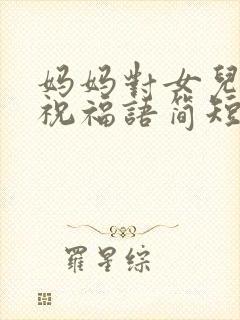 妈妈對女兒
祝福語简短
羅星综